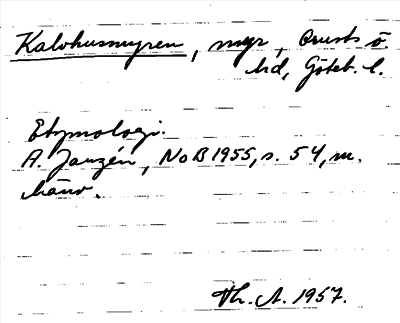 Kalvhusmyren, myr, Onsts ö.
hd, Göteb. l.
Etymologi.
A. Janzén, NoB 1955, s. 54, m.
hänv.
Th. A. 1957.